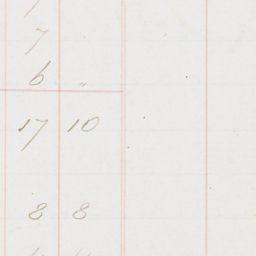 7
6 〃
17 10
8 8